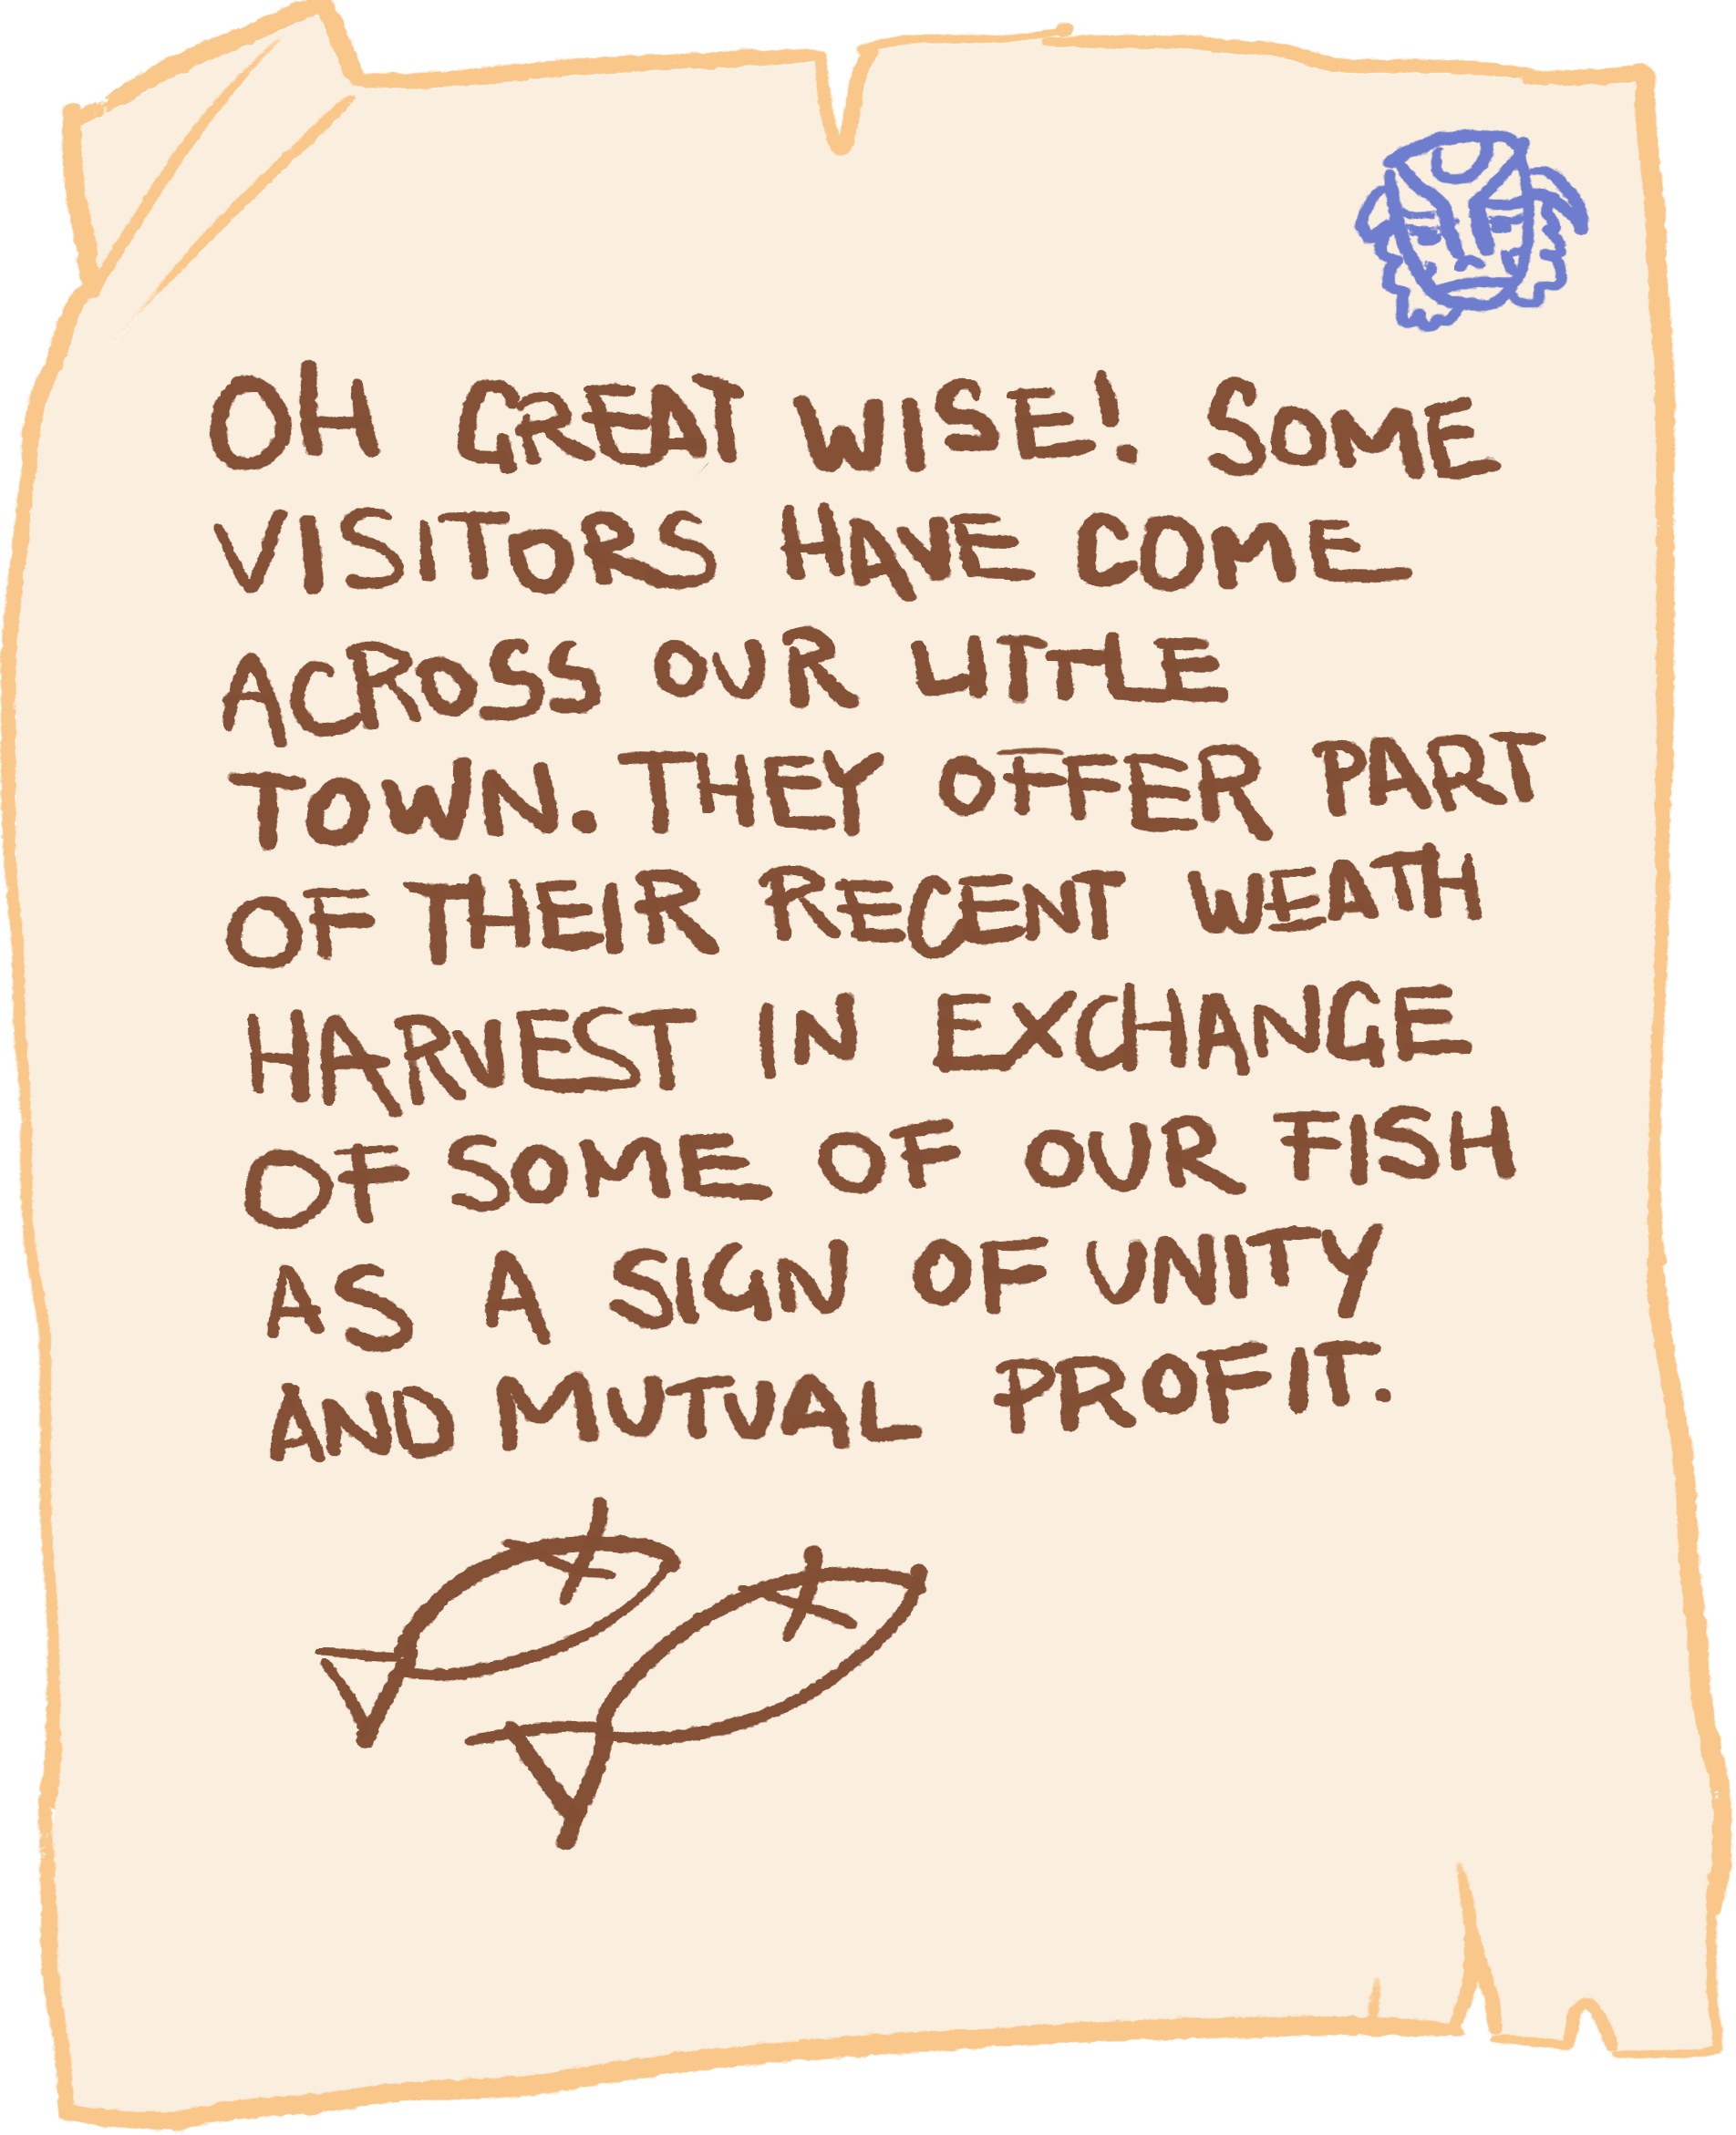 OH GREAT WISE! SOME
VISITORS HAVE COME
ACROSS OUR LITTLE
TOWN. THEY OFFER PART
OF THEIR RECENT WEATH
HARVEST IN EXCHANGE
OF SOME OF OUR FISH
AS A SIGN OF UNITY
AND MUTUAL PROFIT.